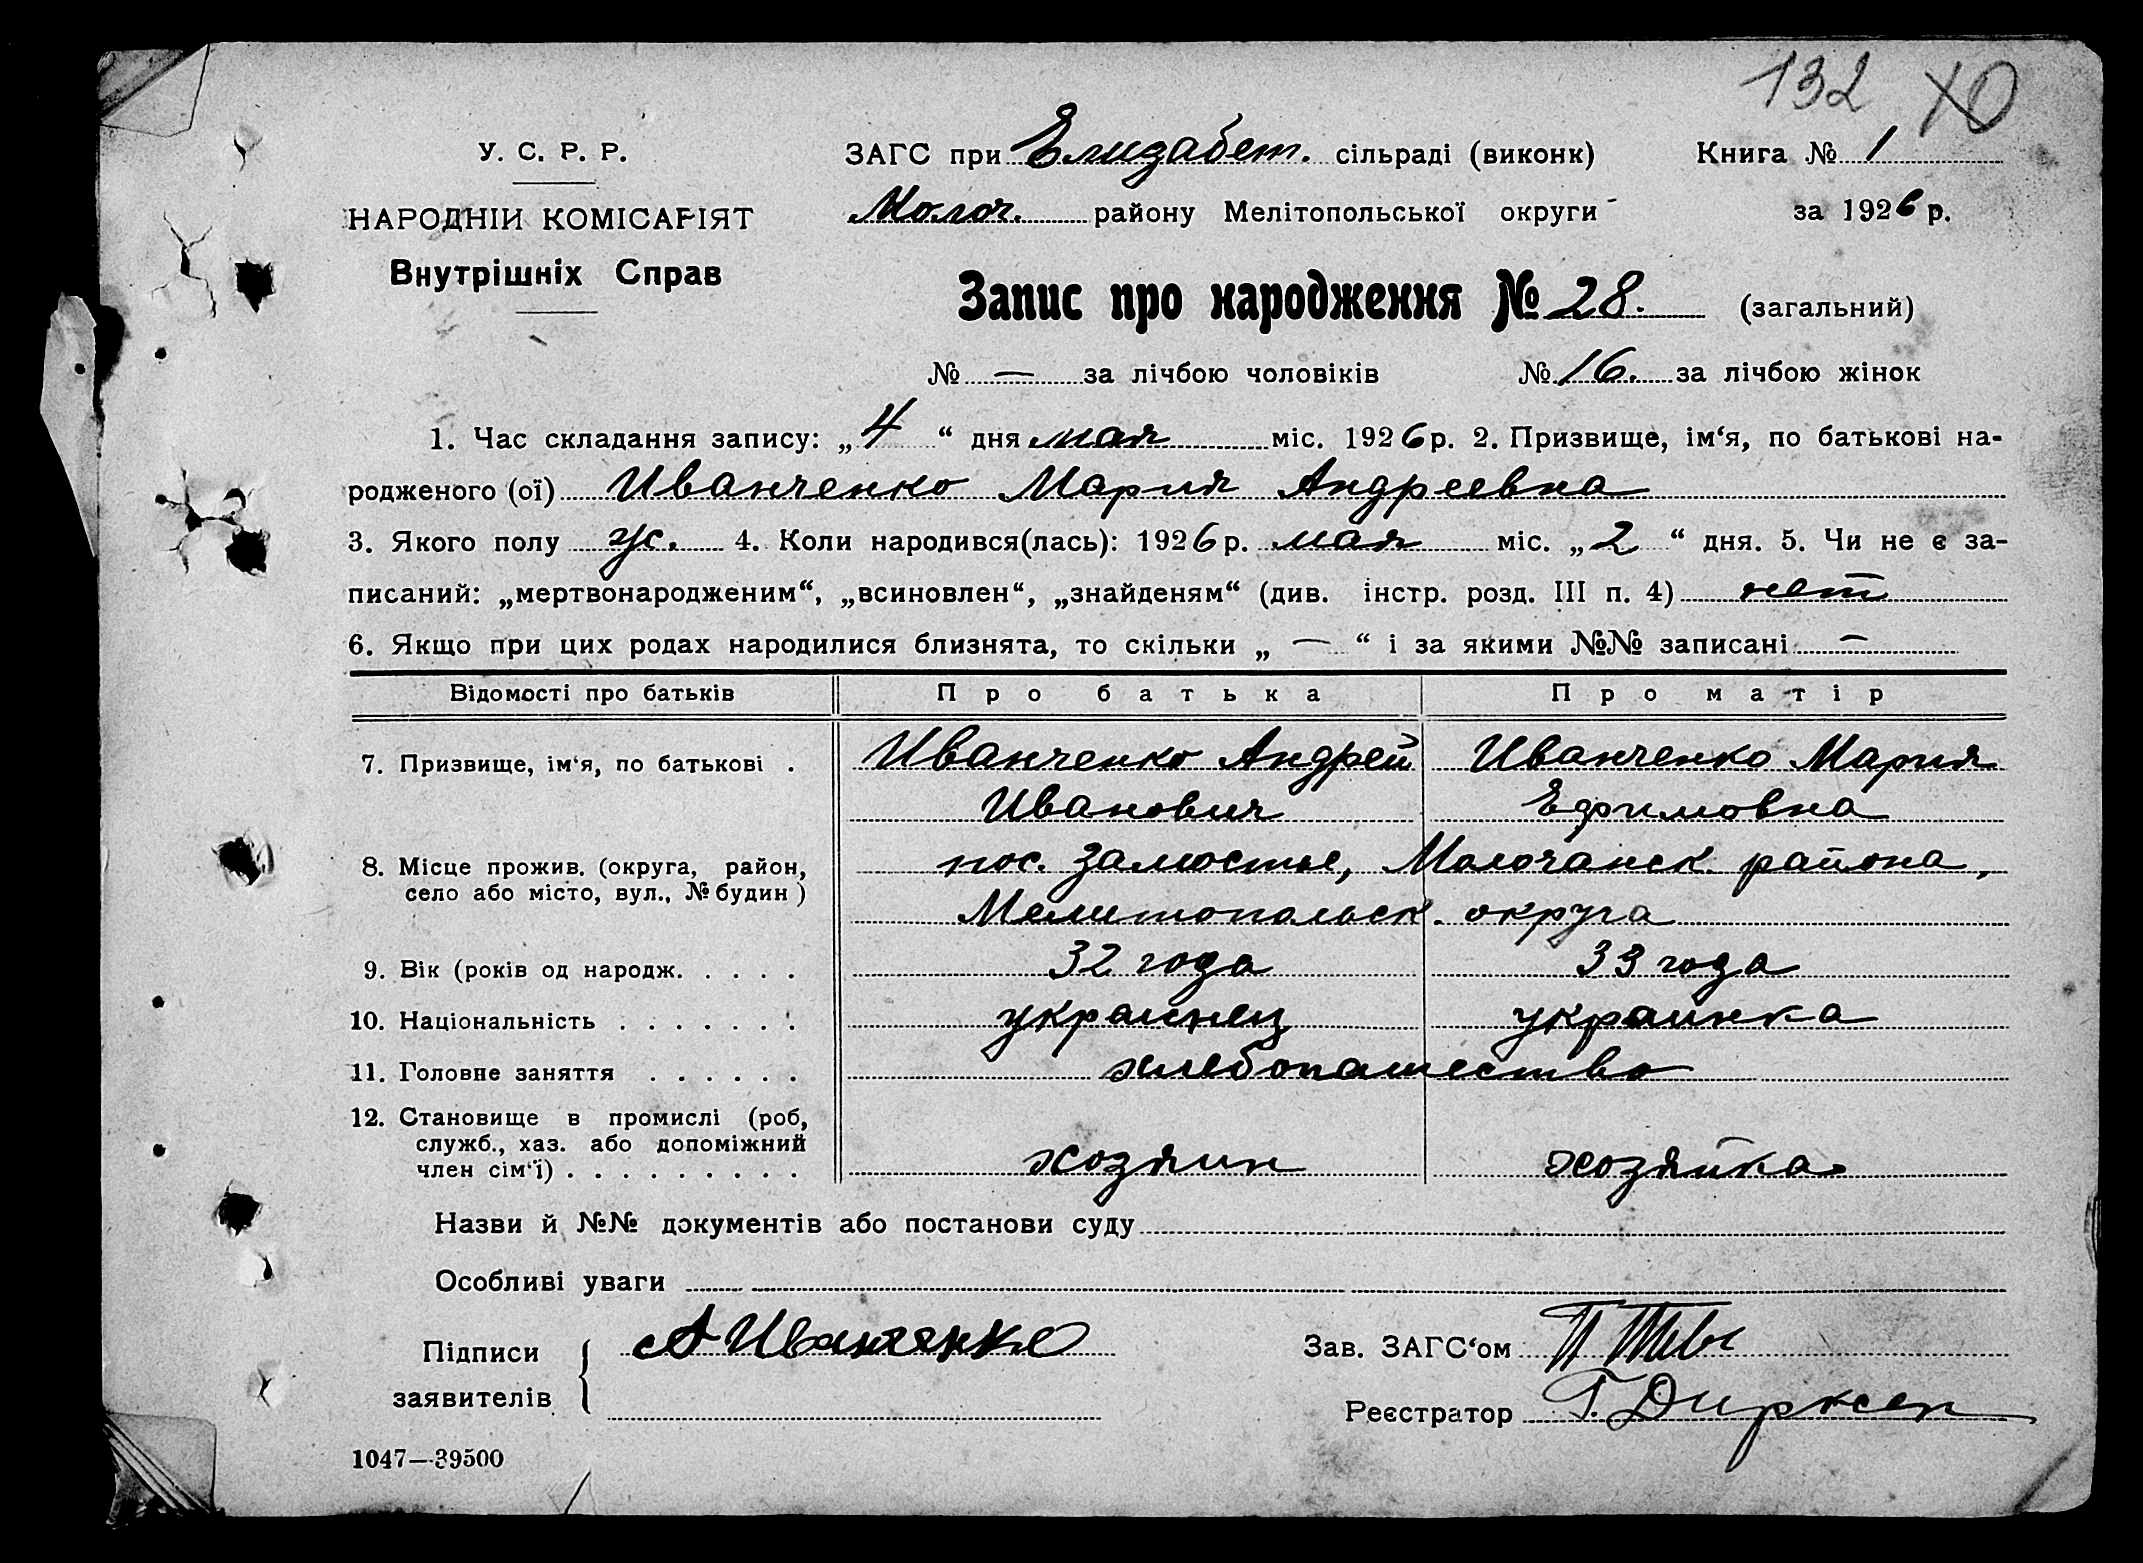 132
У. С. Р. Р.
НАРОДНІЙ КОМІСАРІЯТ
Внутрішніх Справ
ЗАГС при Елизабет. сільраді (виконк) Книга № 1
Молоч. району Мелітопольської округи за 1926 р.
Запис про народження № 28. (загальний)
№ — за лічбою чоловіків № 16. за лічбою жінок
1. Час складання запису: „4“ дня мая міс. 1926 р. 2. Призвище, ім‘я, по батькові на-
родженого (ої) Иванченко Мария Андреевна
3. Якого полу ж. 4. Коли народився(лась): 1926 р. мая міс. „2“ дня. 5. Чи не є за-
писаний: „мертвонародженим“, „всиновлен“, „знайденям“ (див. інстр. розд. III п. 4) нет
6. Якщо при цих родах народилися близнята, то скільки „ — “ і за якими №№ записані —
Відомості про батьків Про батька Про матір
7. Призвище, ім‘я, по батькові . Иванченко Андрей Иванченко Мария
Иванович Ефимовна
8. Місце прожив. (округа, район, пос. Замостье, Молочанск. района,
село або місто, вул., № будин) Мелитопольск. округа
9. Вік (років од народж. . . . . 32 года 33 года
10. Національність . . . . . . . украинец украинка
11. Головне заняття . . . . . . хлебопашество
12. Становище в промислі (роб,
служб., хаз. або допоміжний
член сім‘ї) . . . . . . . . . хозяин хозяйка
Назви й №№ документів або постанови суду
Особливі уваги
Підписи А Иванченко Зав. ЗАГС‘ом
заявителів Реєстратор Г. Дирксен
1047—39500